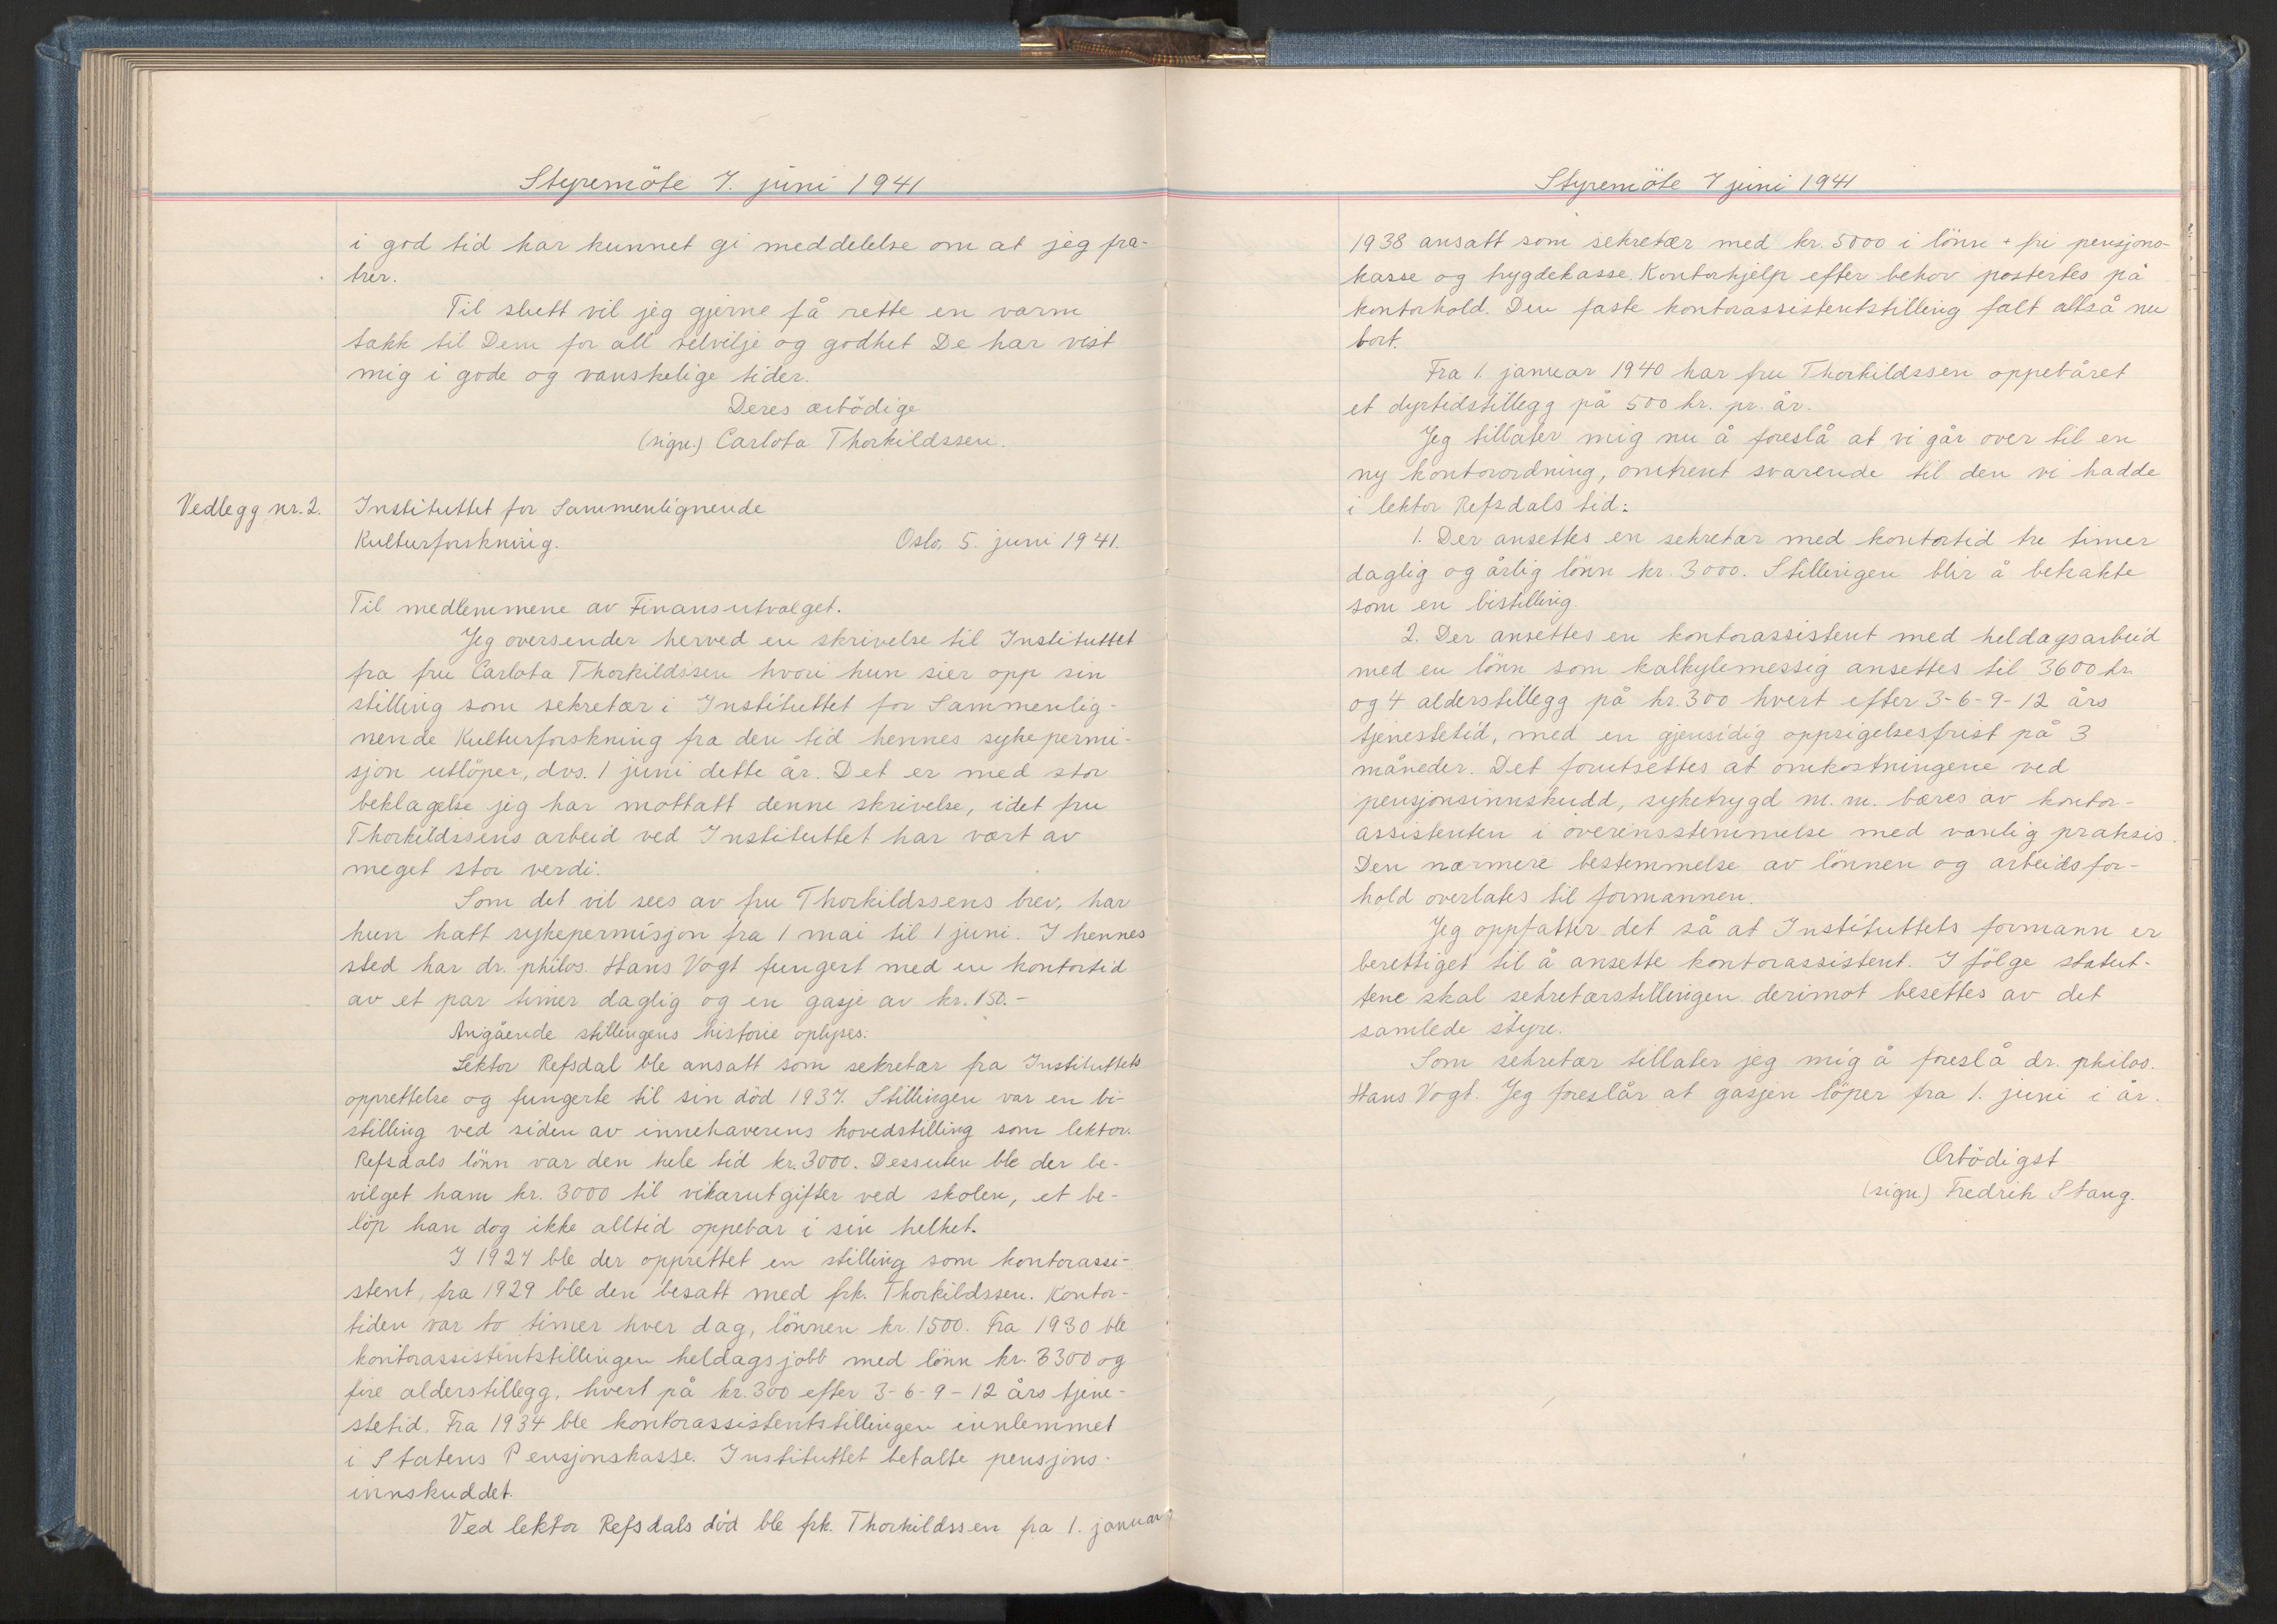 Styremöte 7. juni 1941
i god tid har kunnet gi meddelelse om at jeg fra-
trer.
Til slutt vil jeg gjerne få rette en varm
takk til Dem for all velvilje og godhet De har vist
mig i gode og vanskelige tider.
Deres ærbödige
(sign.) Carlota Thorkildssen.
Vedlegg nr. 2.
Instituttet for Sammenlignende
Kulturforskning. Oslo, 5. juni 1941.
Til medlemmene av Finansutvalget.
Jeg oversender herved en skrivelse til Instituttet
fra fru Carlota Thorkildssen hvori hun sier opp sin
stilling som sekretær i Instituttet for Sammenlig-
nende Kulturforskning fra den tid hennes sykepermi-
sjon utlöper, dvs. 1 juni dette år. Det er med stor
beklagelse jeg har mottatt denne skrivelse, idet fru
Thorkildssens arbeid ved Instituttet har vært av
meget stor verdi.
Som det vil sees av fru Thorkildssens brev, har
hun hatt sykepermisjon fra 1 mai til 1 juni. I hennes
sted har dr. philos. Hans Vogt fungert med en kontortid
av et par timer daglig og en gasje av kr. 150.-
Angående stillingens historie oplyses:
Lektor Refsdal ble ansatt som sekretær fra Instituttets
opprettelse og fungerte til sin död 1937. Stillingen var en bi-
stilling ved siden av innehaverens hovedstilling som lektor.
Refsdals lönn var den hele tid kr. 3000. Dessuten ble der be-
vilget ham kr. 3000 til vikarutgifter ved skolen, et be-
löp han dog ikke alltid oppebar i sin helhet.
I 1927 ble der opprettet en stilling som kontorassi-
stent, fra 1929 ble den besatt med frk. Thorkildssen. Kontor-
tiden var to timer hver dag, lönnen kr. 1500. Fra 1930 ble
kontorassistentstillingen heldagsjobb med lönn kr. 3300 og
fire alderstillegg, hvert på kr. 300 efter 3-6-9-12 års tjene-
stetid. Fra 1934 ble kontorassistentstillingen innlemmet
i Statens Pensjonskasse. Instituttet betalte pensjons-
innskuddet.
Ved lektor Refsdals död ble frk. Thorkildssen fra 1. januar
Styremöte 7 juni 1941
1938 ansatt som sekretær med kr. 5000 i lönn + fri pensjons-
kasse og trygdekasse. Kontorhjelp efter behov postertes på
kontorhold. Den faste kontorassistentstilling falt altså nu
bort.
Fra 1. januar 1940 har fru Thorkildssen oppebåret
et dyrtidstillegg på 500 kr. pr. år.
Jeg tillater mig nu å foreslå at vi går over til en
ny kontorordning, omtrent svarende til den vi hadde
i lektor Refsdals tid:
1. Der ansettes en sekretær med kontortid tre timer
daglig og årlig lönn kr. 3000. Stillingen blir å betrakte
som en bistilling.
2. Der ansettes en kontorassistent med heldagsarbeid
med en lönn som kalkylemessig ansettes til 3600 kr.
og 4 alderstillegg på kr. 300 hvert efter 3-6-9-12 års
tjenestetid, med en gjensidig oppsigelsesfrist på 3
måneder. Det forutsettes at omkostningene ved
pensjonsinnskudd, syketrygd m. m. bæres av kontor-
assistenten i overensstemmelse med vanlig praksis.
Den nærmere bestemmelse av lönnen og arbeidsfor-
hold overlates til formannen.
Jeg oppfatter det så at Instituttets formann er
berettiget til å ansette kontorassistent. I fölge statut-
tene skal sekretærstillingen derimot besettes av det
samlede styre.
Som sekretær tillater jeg mig å foreslå dr. philos.
Hans Vogt. Jeg foreslår at gasjen löper fra 1. juni i år.
Ærbödigst
(sign.) Fredrik Stang.